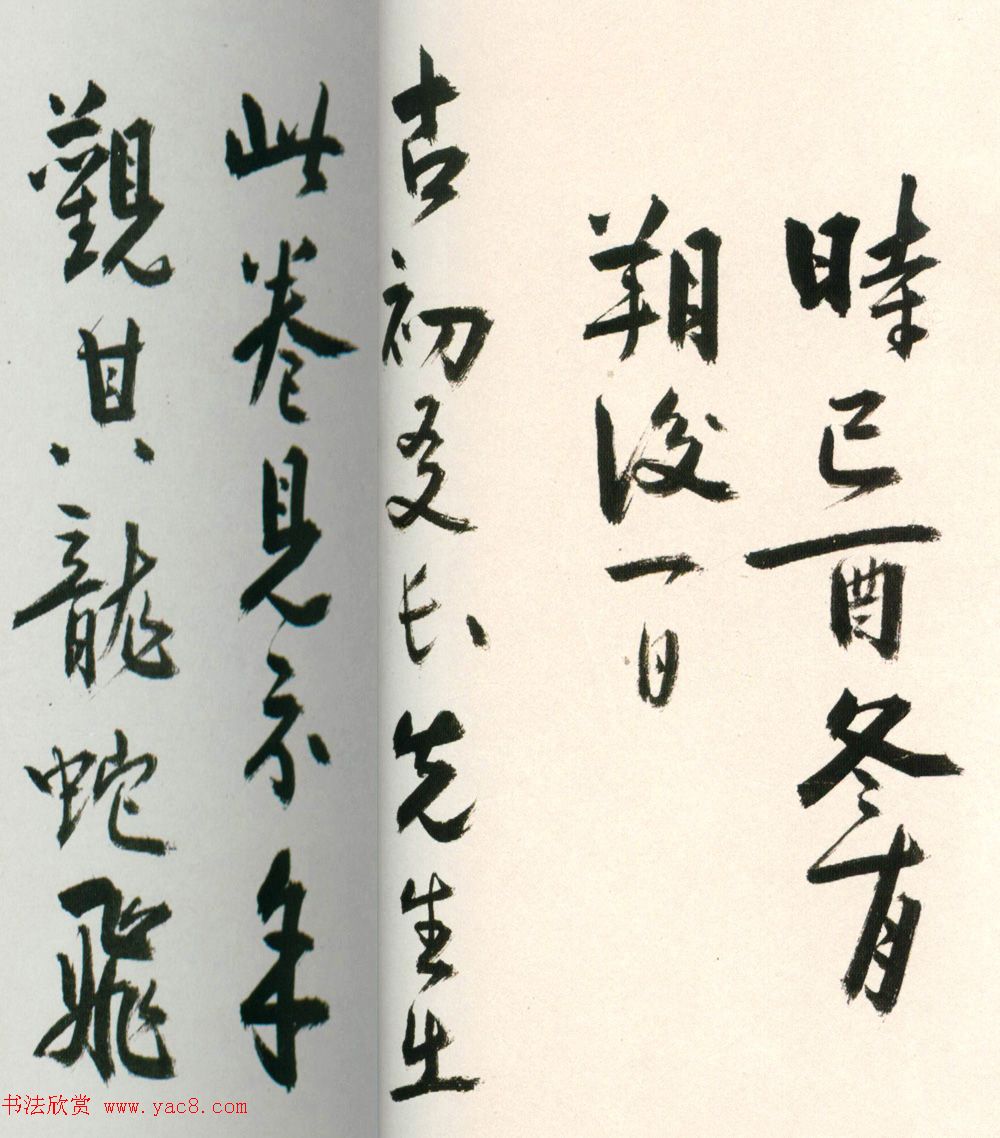 時己酉冬十月
朔後一日
吉初友長先生出
此卷見示余
觀其龍蛇飛
书法欣赏 www.yac8.com